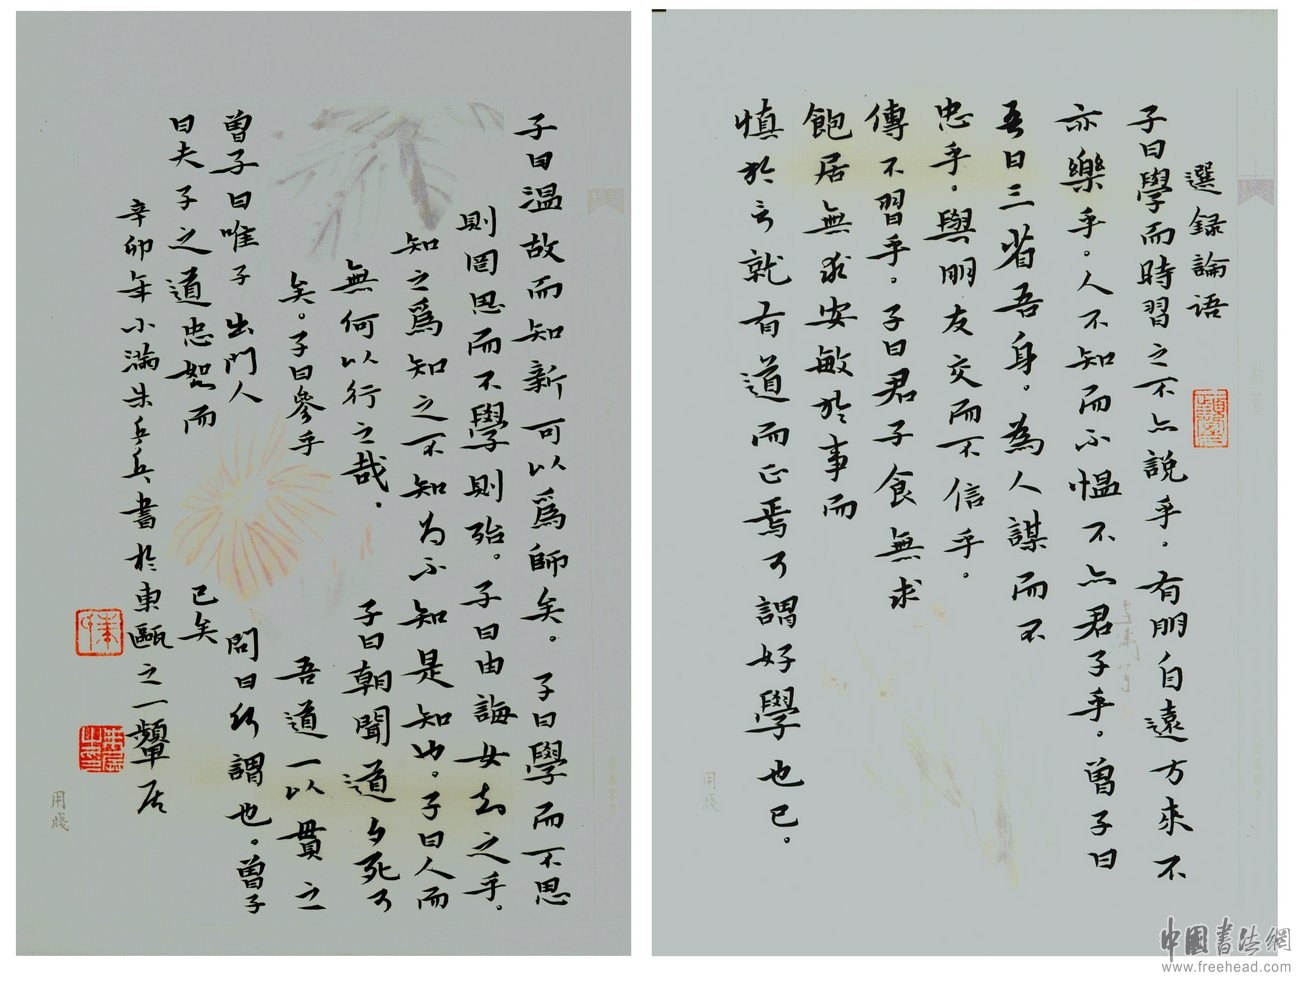 選録論语
子曰學而時習之不亦説乎。有朋自遠方来不
亦樂乎。人不知而不愠不亦君子乎。曾子曰
吾日三省吾身。為人謀而不
忠乎。與朋友交而不信乎。
傳不習乎。子曰君子食無求
飽居無求安敏於事而
慎於言就有道而正焉可謂好學也已。
子曰温故而知新可以爲師矣。子曰學而不思
則罔思而不學則殆。子曰由誨女知之乎。
知之爲知之不知为不知是知也。子曰人而
無何以行之哉。子曰朝聞道夕死可
矣。子曰參乎吾道一以貫之
曾子曰唯子出門人問曰何謂也。曾子
曰夫子之道忠恕而已矣
辛卯年小満朱兵兵書於東甌之一顰居
用牋
用牋
中國書法網
www.freehead.com